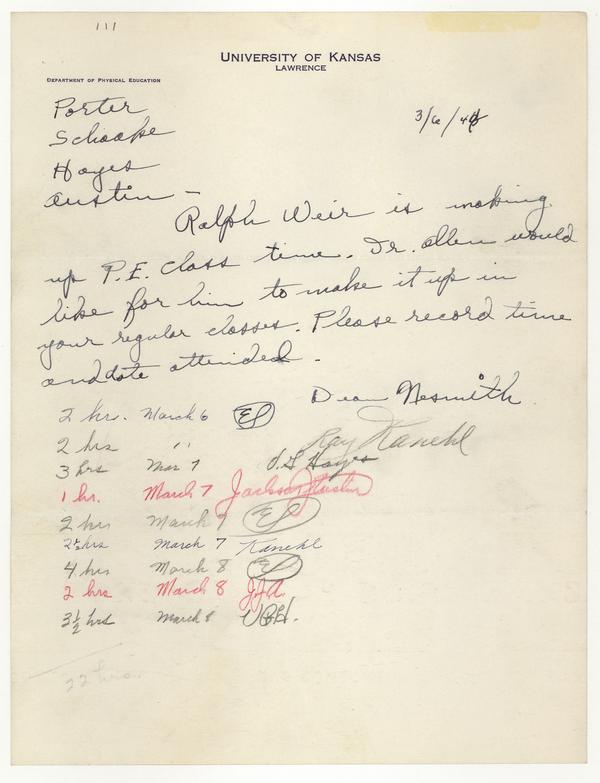 111
UNIVERSITY OF KANSAS
LAWRENCE
DEPARTMENT OF PHYSICAL EDUCATION
3/6/44
Porter
Schaake
Hayes
Austin –
Ralph Weir is making
up P.E. class time. Dr. Allen would
like for him to make it up in
your regular classes. Please record time
and date attended.
Dean Nesmith.
2 hrs. March 6
2 hrs " Ray Kanehl
3 hrs Mar 7 Hayes
1 hr. March 7 Jackson Austin
2 hrs March 7
2½ hrs March 7 Kanehl
4 hrs March 8
2 hrs March 8 J.J.A.
3½ hrs March 8
22 hrs.